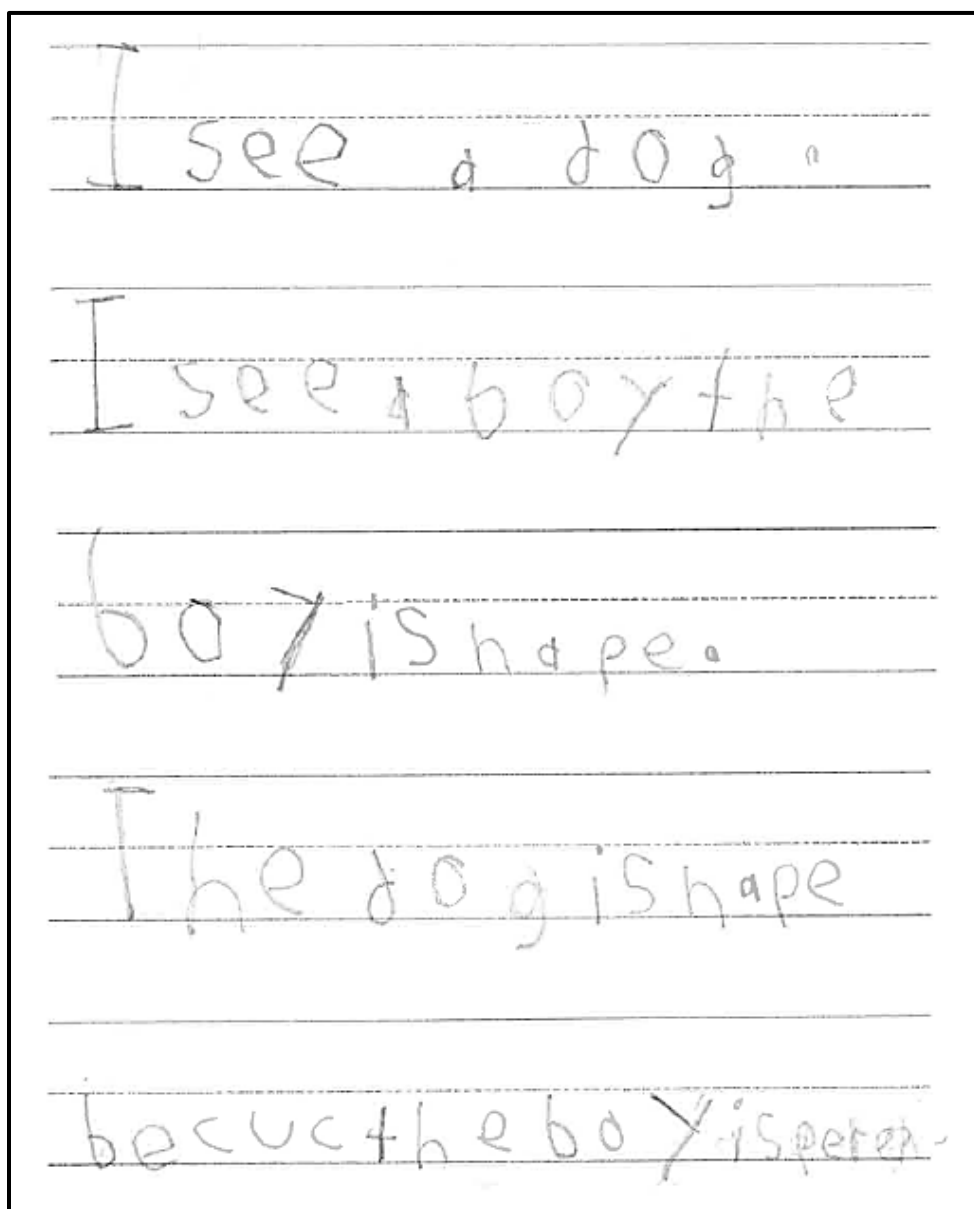 I see a dog.
I see a boy the
boy is hape.
The dog is hape
becuc the boy is